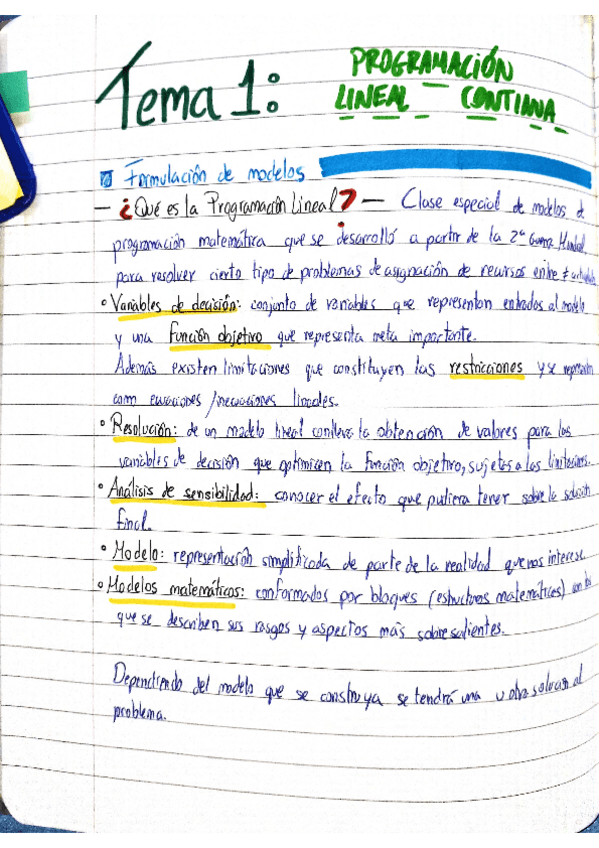 Tema 1:
PROGRAMACIÓN
LINEAL CONTINUA
Formulación de modelos
— ¿Qué es la Programación Lineal? — Clase especial de modelos de
programación matemática que se desarrolló a partir de la 2ª Guerra Mundial
para resolver cierto tipo de problemas de asignación de recursos entre ≠
° Variables de decisión: conjunto de variables que representan entradas al modelo
y una función objetivo que representa meta importante.
Además existen limitaciones que constituyen las restricciones y se representan
como ecuaciones/inecuaciones lineales.
° Resolución: de un modelo lineal conlleva la obtención de valores para las
variables de decisión que optimicen la función objetivo, sujetes a las limitaciones.
° Análisis de sensibilidad: conocer el efecto que pudiera tener sobre la solución
final.
° Modelo: representación simplificada de parte de la realidad que nos interese.
° Modelos matemáticos: conformados por bloques (estructuras matemáticas) en los
que se describen sus rasgos y aspectos más sobresalientes.
Dependiendo del modelo que se construya se tendrá una u otra solución al
problema.